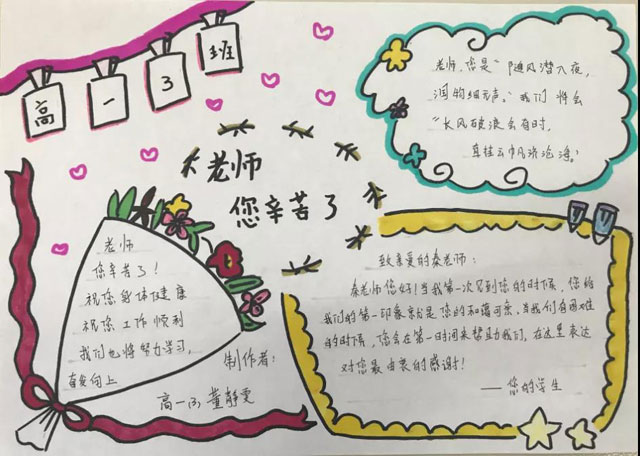 高一3班
老师
您辛苦了
老师，您是“随风潜入夜，
润物细无声。”我们将会
“长风破浪会有时，
直挂云帆济沧海。”
老师
您辛苦了！
祝您身体健康
祝您工作顺利
我们也将努力学习，
奋发向上
制作者：
高一(3) 董静雯
致亲爱的秦老师：
秦老师您好！当我第一次见到您的时候，您给
我们的第一印象就是您的和蔼可亲，当我们有困难
的时候，您会在第一时间来帮助我们，在这里表达
对您最由衷的感谢！
——您的学生